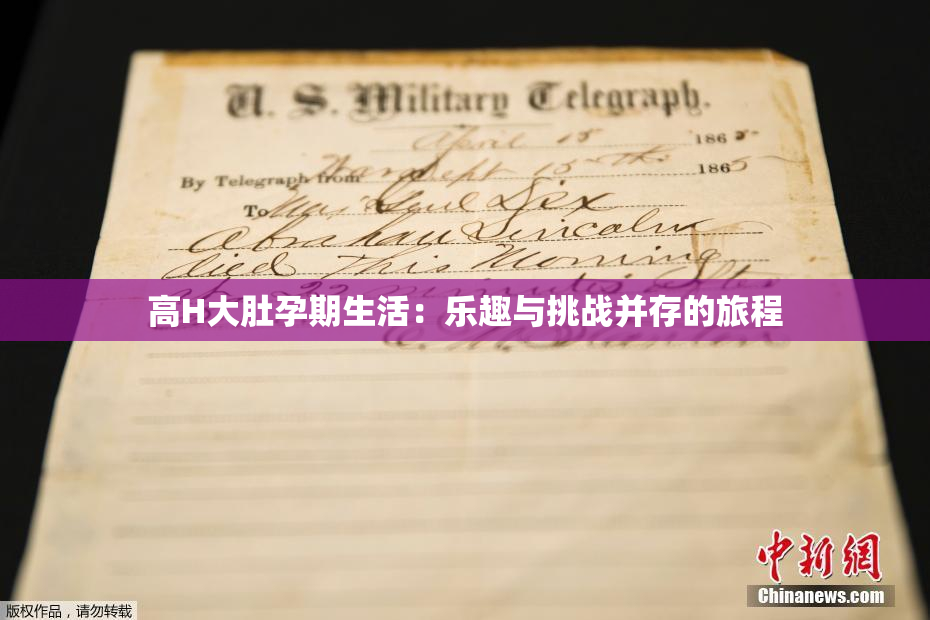 U. S. Military Telegraph.
April 15 1865
By Telegraph from War Dept 15th 1865
To Maj Genl Dix
Abraham Lincoln
died This Morning
at 22 minutes after
高H大肚孕期生活：乐趣与挑战并存的旅程
E. M. Stanton
中新网
Chinanews.com
版权作品，请勿转载